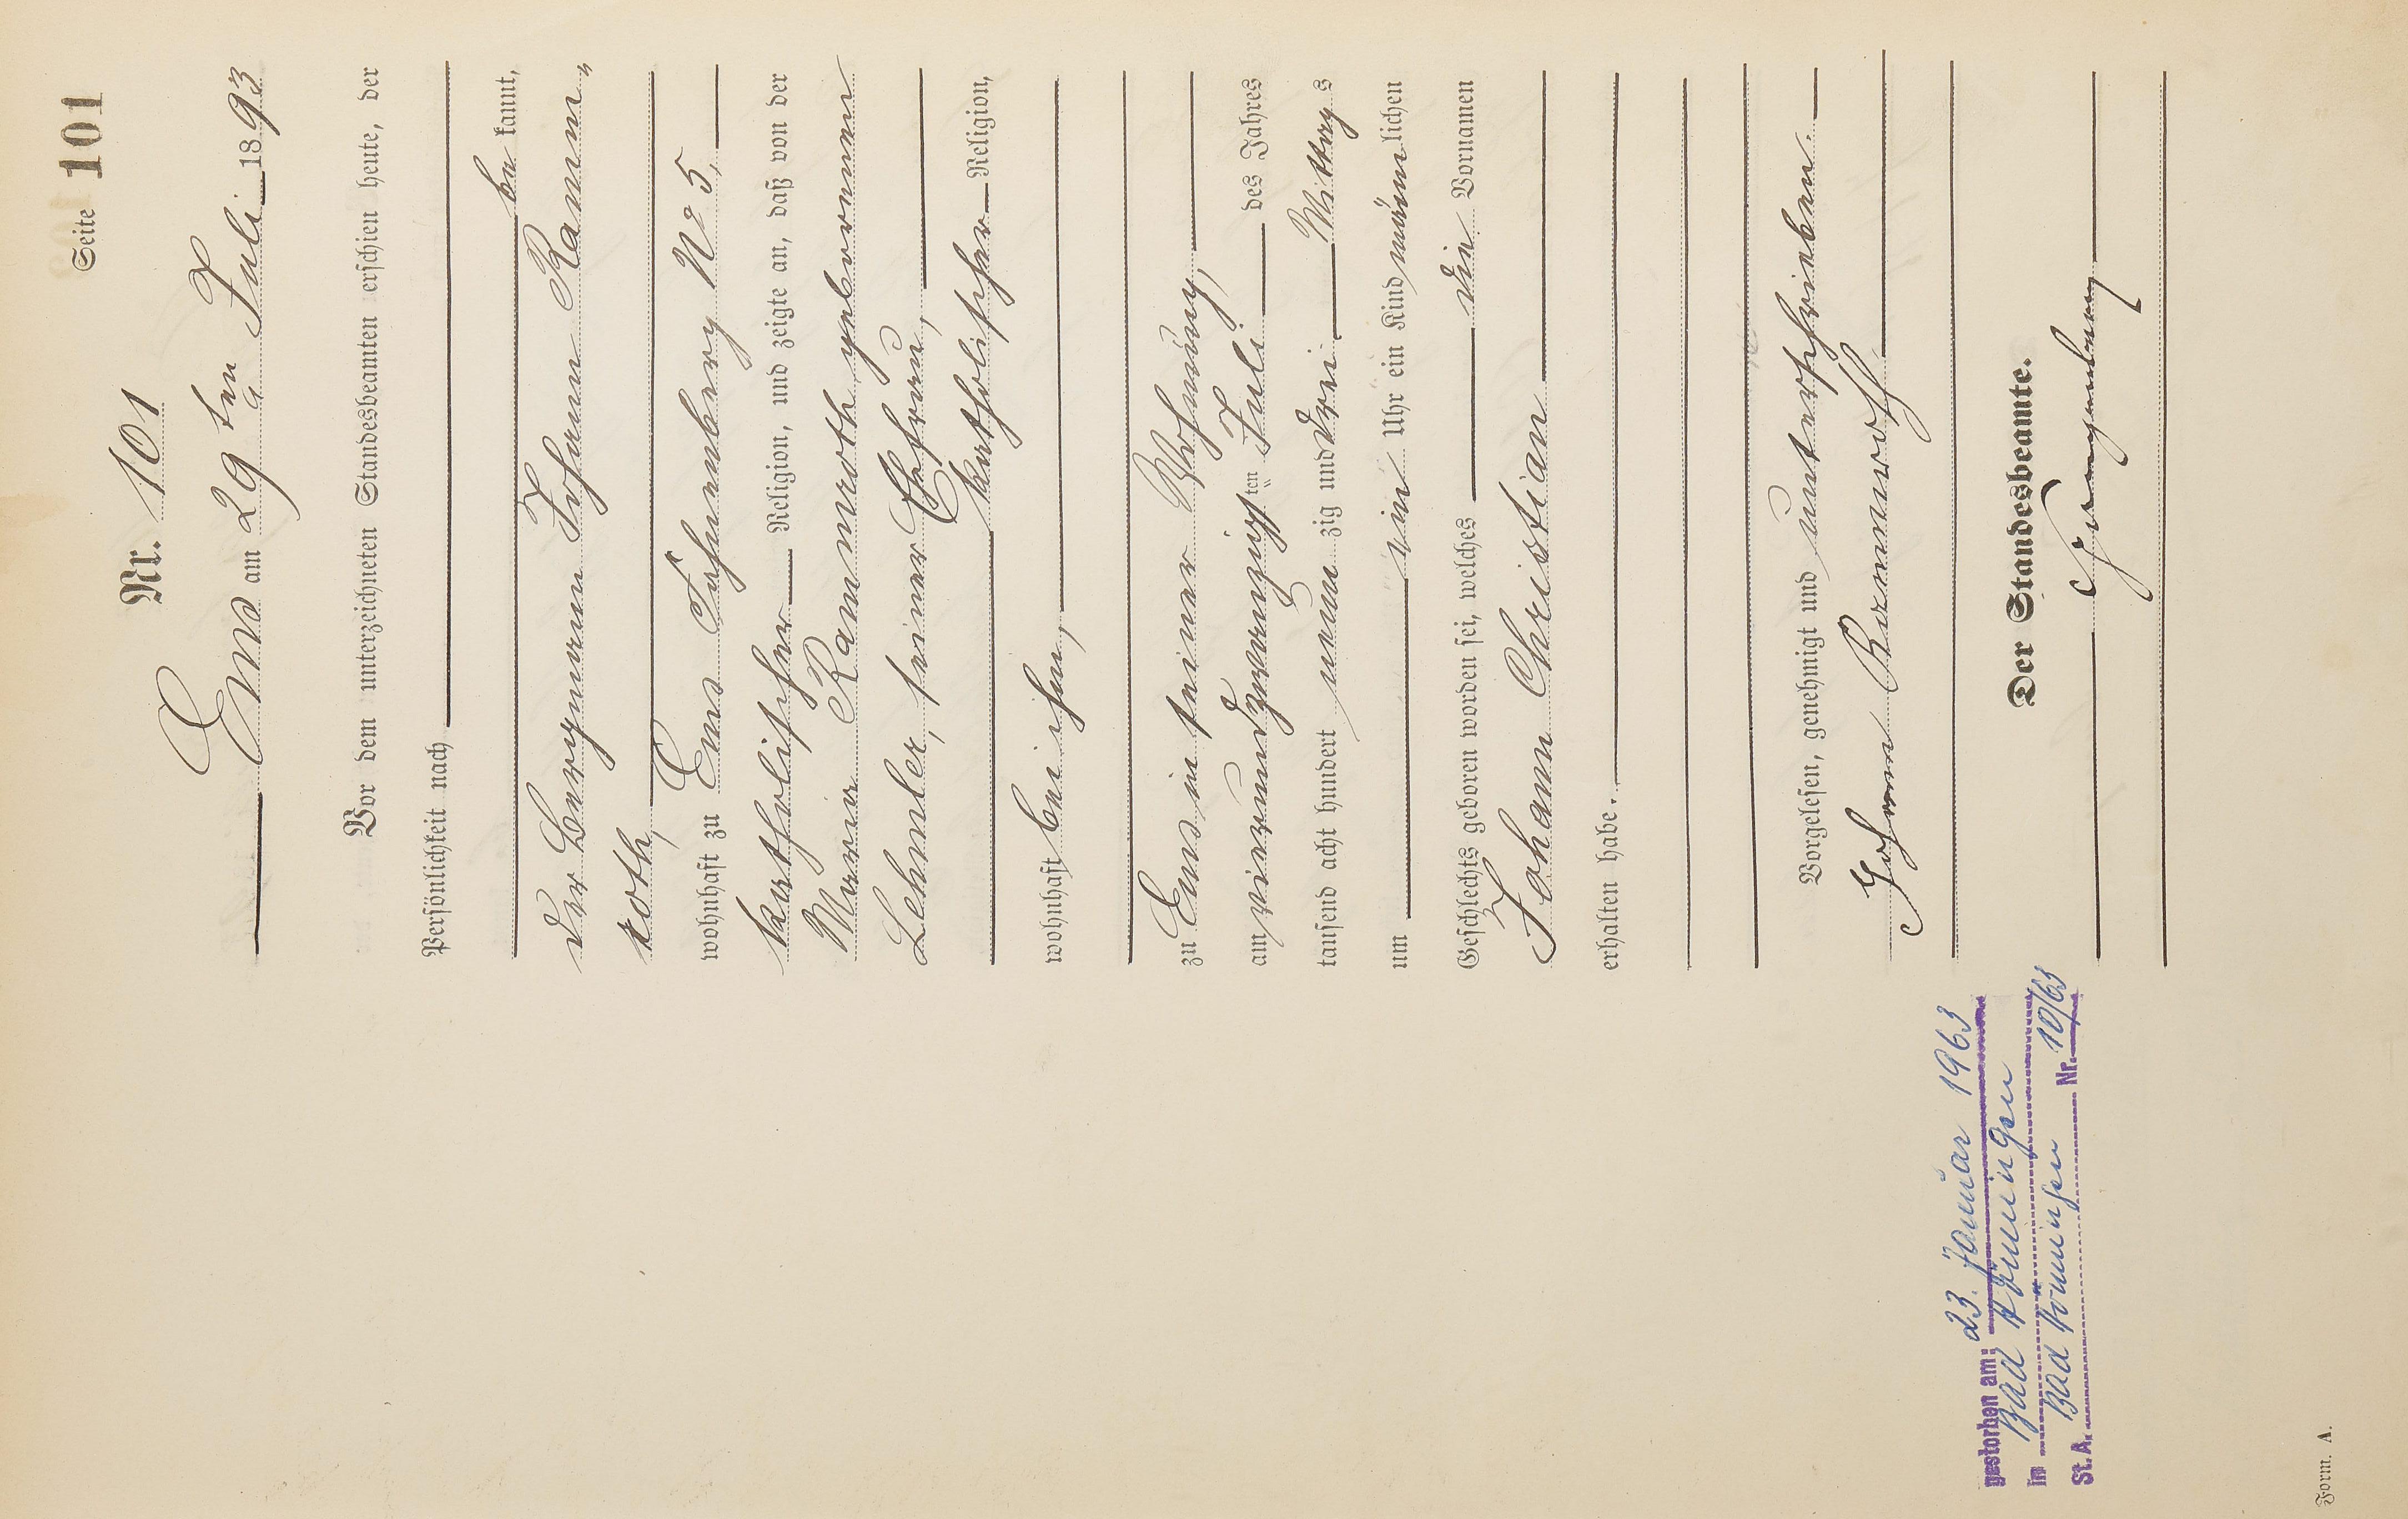 Seite 101
Nr. 101
Ems am 29ten Juli 1893
Vor dem unterzeichneten Standesbeamten erschien heute, der
Persönlichkeit nach
be kannt,
der Bergmann Johann Ramm-
roth,
wohnhaft zu Ems N° 5,
katholischer Religion, und zeigte an, daß von der
Maria Rammroth geborenen
Lehmler, seiner Ehefrau,
katholischer Religion,
wohnhaft bei ihm,
zu Ems in seiner Wohnung,
am vierundzwanzigsten Juli des Jahres
tausend acht hundert neun zig und drei Mittags
um ein Uhr ein Kind männlichen
Geschlechts geboren worden sei, welches die Vornamen
Johann Christian
erhalten habe.
Vorgelesen, genehmigt und unterschrieben.
Johann Rammroth
Der Standesbeamte.
gestorben am: 23. Januar 1963
in Bad Krozingen
St. A. Bad Krozingen Nr. 10/63
Form. A.